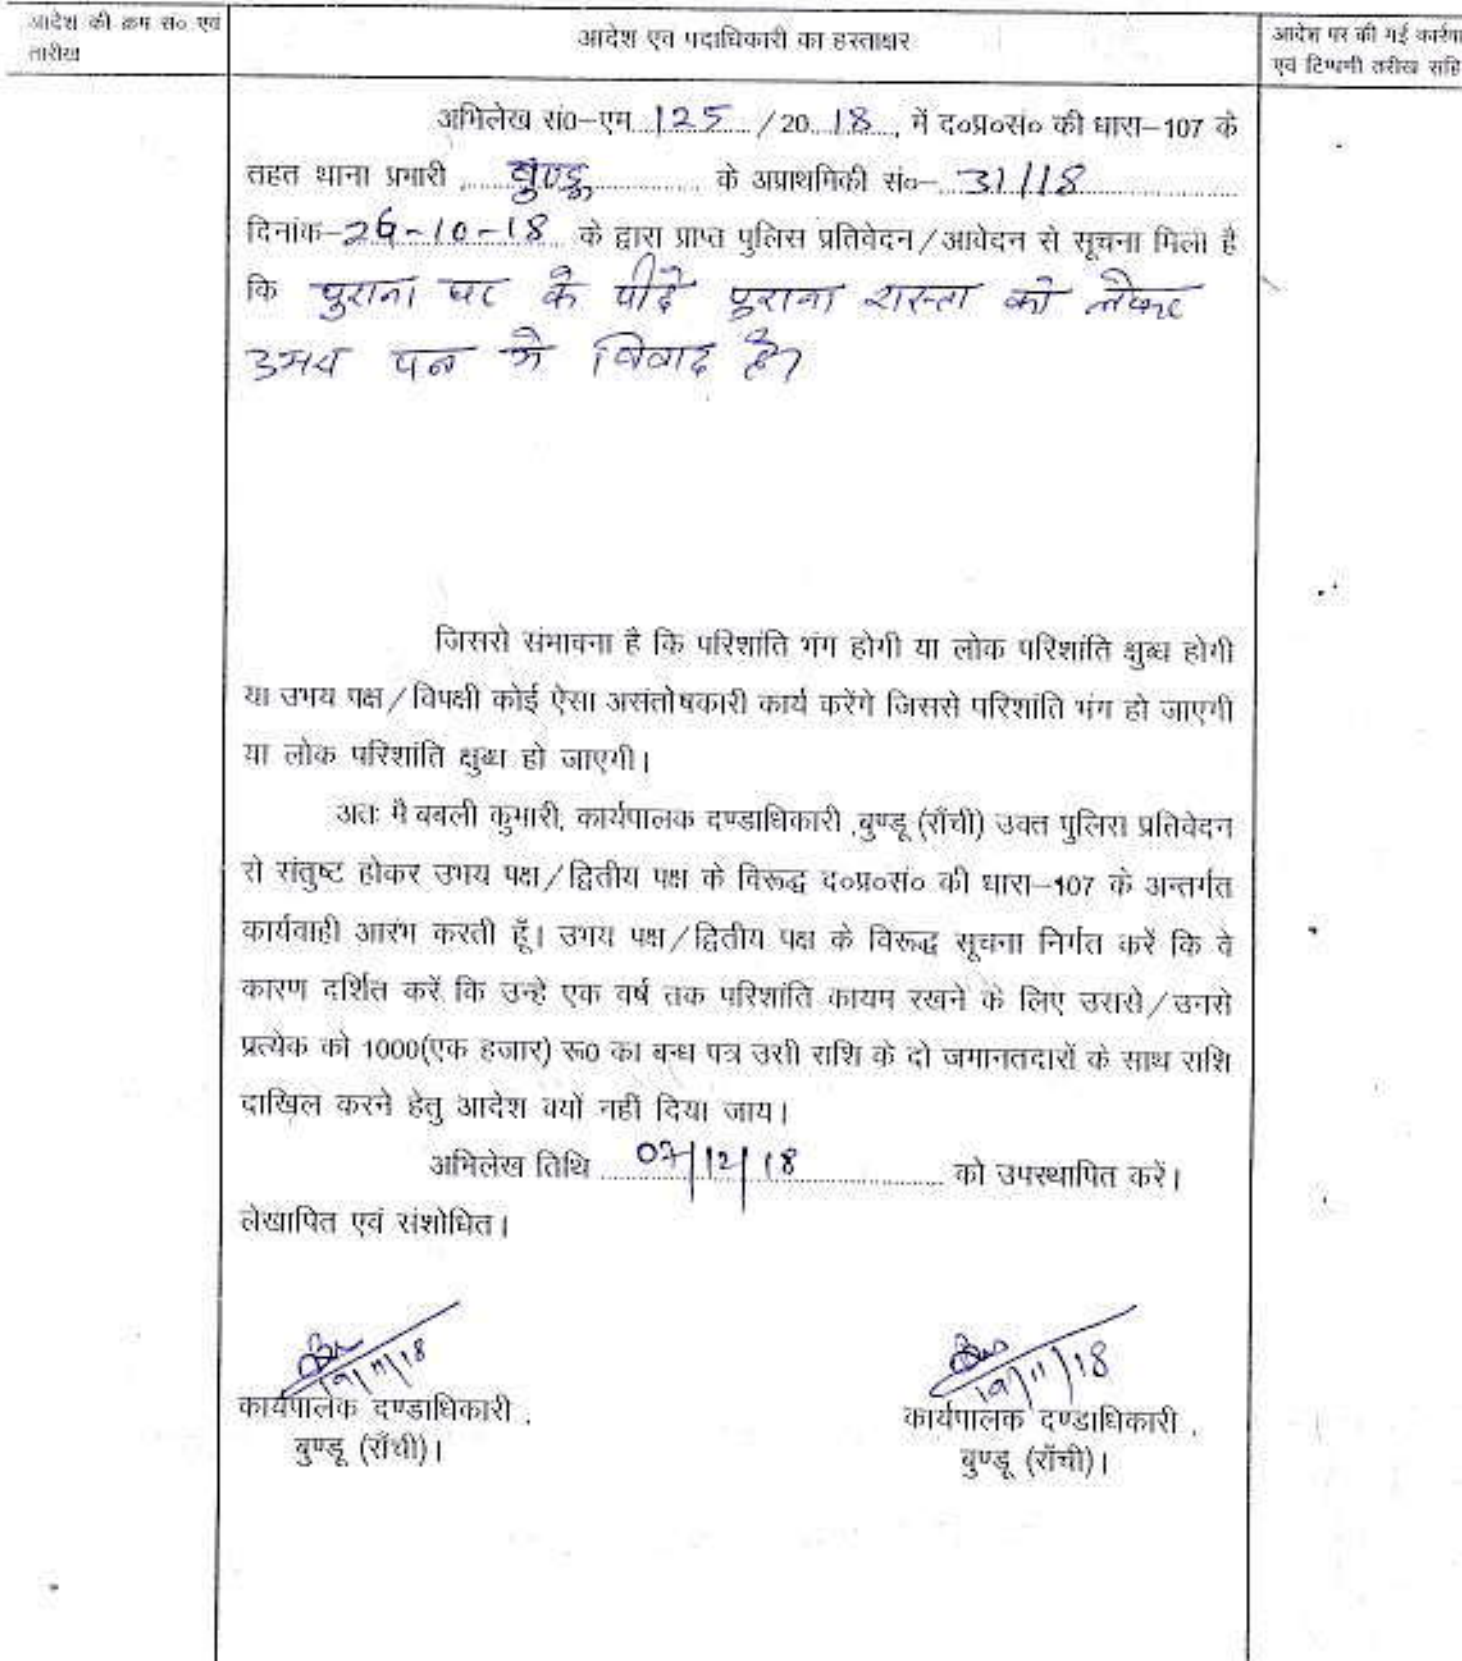 आदेश की क्रम सं० एवं
तारीख
आदेश एवं पदाधिकारी का हस्ताक्षर
आदेश पर की गई कार्रवा
एवं टिप्पणी तरीख सहि
अभिलेख सं0–एम 125 / 20 18, में द०प्र०सं० की धारा–107 के
तहत थाना प्रभारी, बुण्डू के अप्राथमिकी सं०– 31/18
दिनांक– 26-10-18 के द्वारा प्राप्त पुलिस प्रतिवेदन/आवेदन से सूचना मिला है
कि पुराना घर के पीछे पुराना रास्ता को लेकर
उभय पक्ष में विवाद है।
जिससे संभावना है कि परिशांति भंग होगी या लोक परिशांति क्षुब्ध होगी
या उभय पक्ष/विपक्षी कोई ऐसा असंतोषकारी कार्य करेंगे जिससे परिशांति भंग हो जाएगी
या लोक परिशांति क्षुब्ध हो जाएगी।
अतः मै बबली कुमारी, कार्यपालक दण्डाधिकारी ,बुण्डू (राँची) उक्त पुलिस प्रतिवेदन
से संतुष्ट होकर उभय पक्ष/द्वितीय पक्ष के विरूद्ध द०प्र०सं० की धारा–107 के अन्तर्गत
कार्यवाही आरंभ करती हूँ। उभय पक्ष/द्वितीय पक्ष के विरूद्ध सूचना निर्गत करें कि वे
कारण दर्शित करें कि उन्हे एक वर्ष तक परिशांति कायम रखने के लिए उससे/उनसे
प्रत्येक को 1000(एक हजार) रू0 का बन्ध पत्र उसी राशि के दो जमानतदारों के साथ राशि
दाखिल करने हेतु आदेश क्यों नहीं दिया जाय।
अभिलेख तिथि 07/12/18 को उपस्थापित करें।
लेखापित एवं संशोधित।
19/11/18 19/11/18
कार्यपालक दण्डाधिकारी , कार्यपालक दण्डाधिकारी ,
बुण्डू (राँची)। बुण्डू (राँची)।